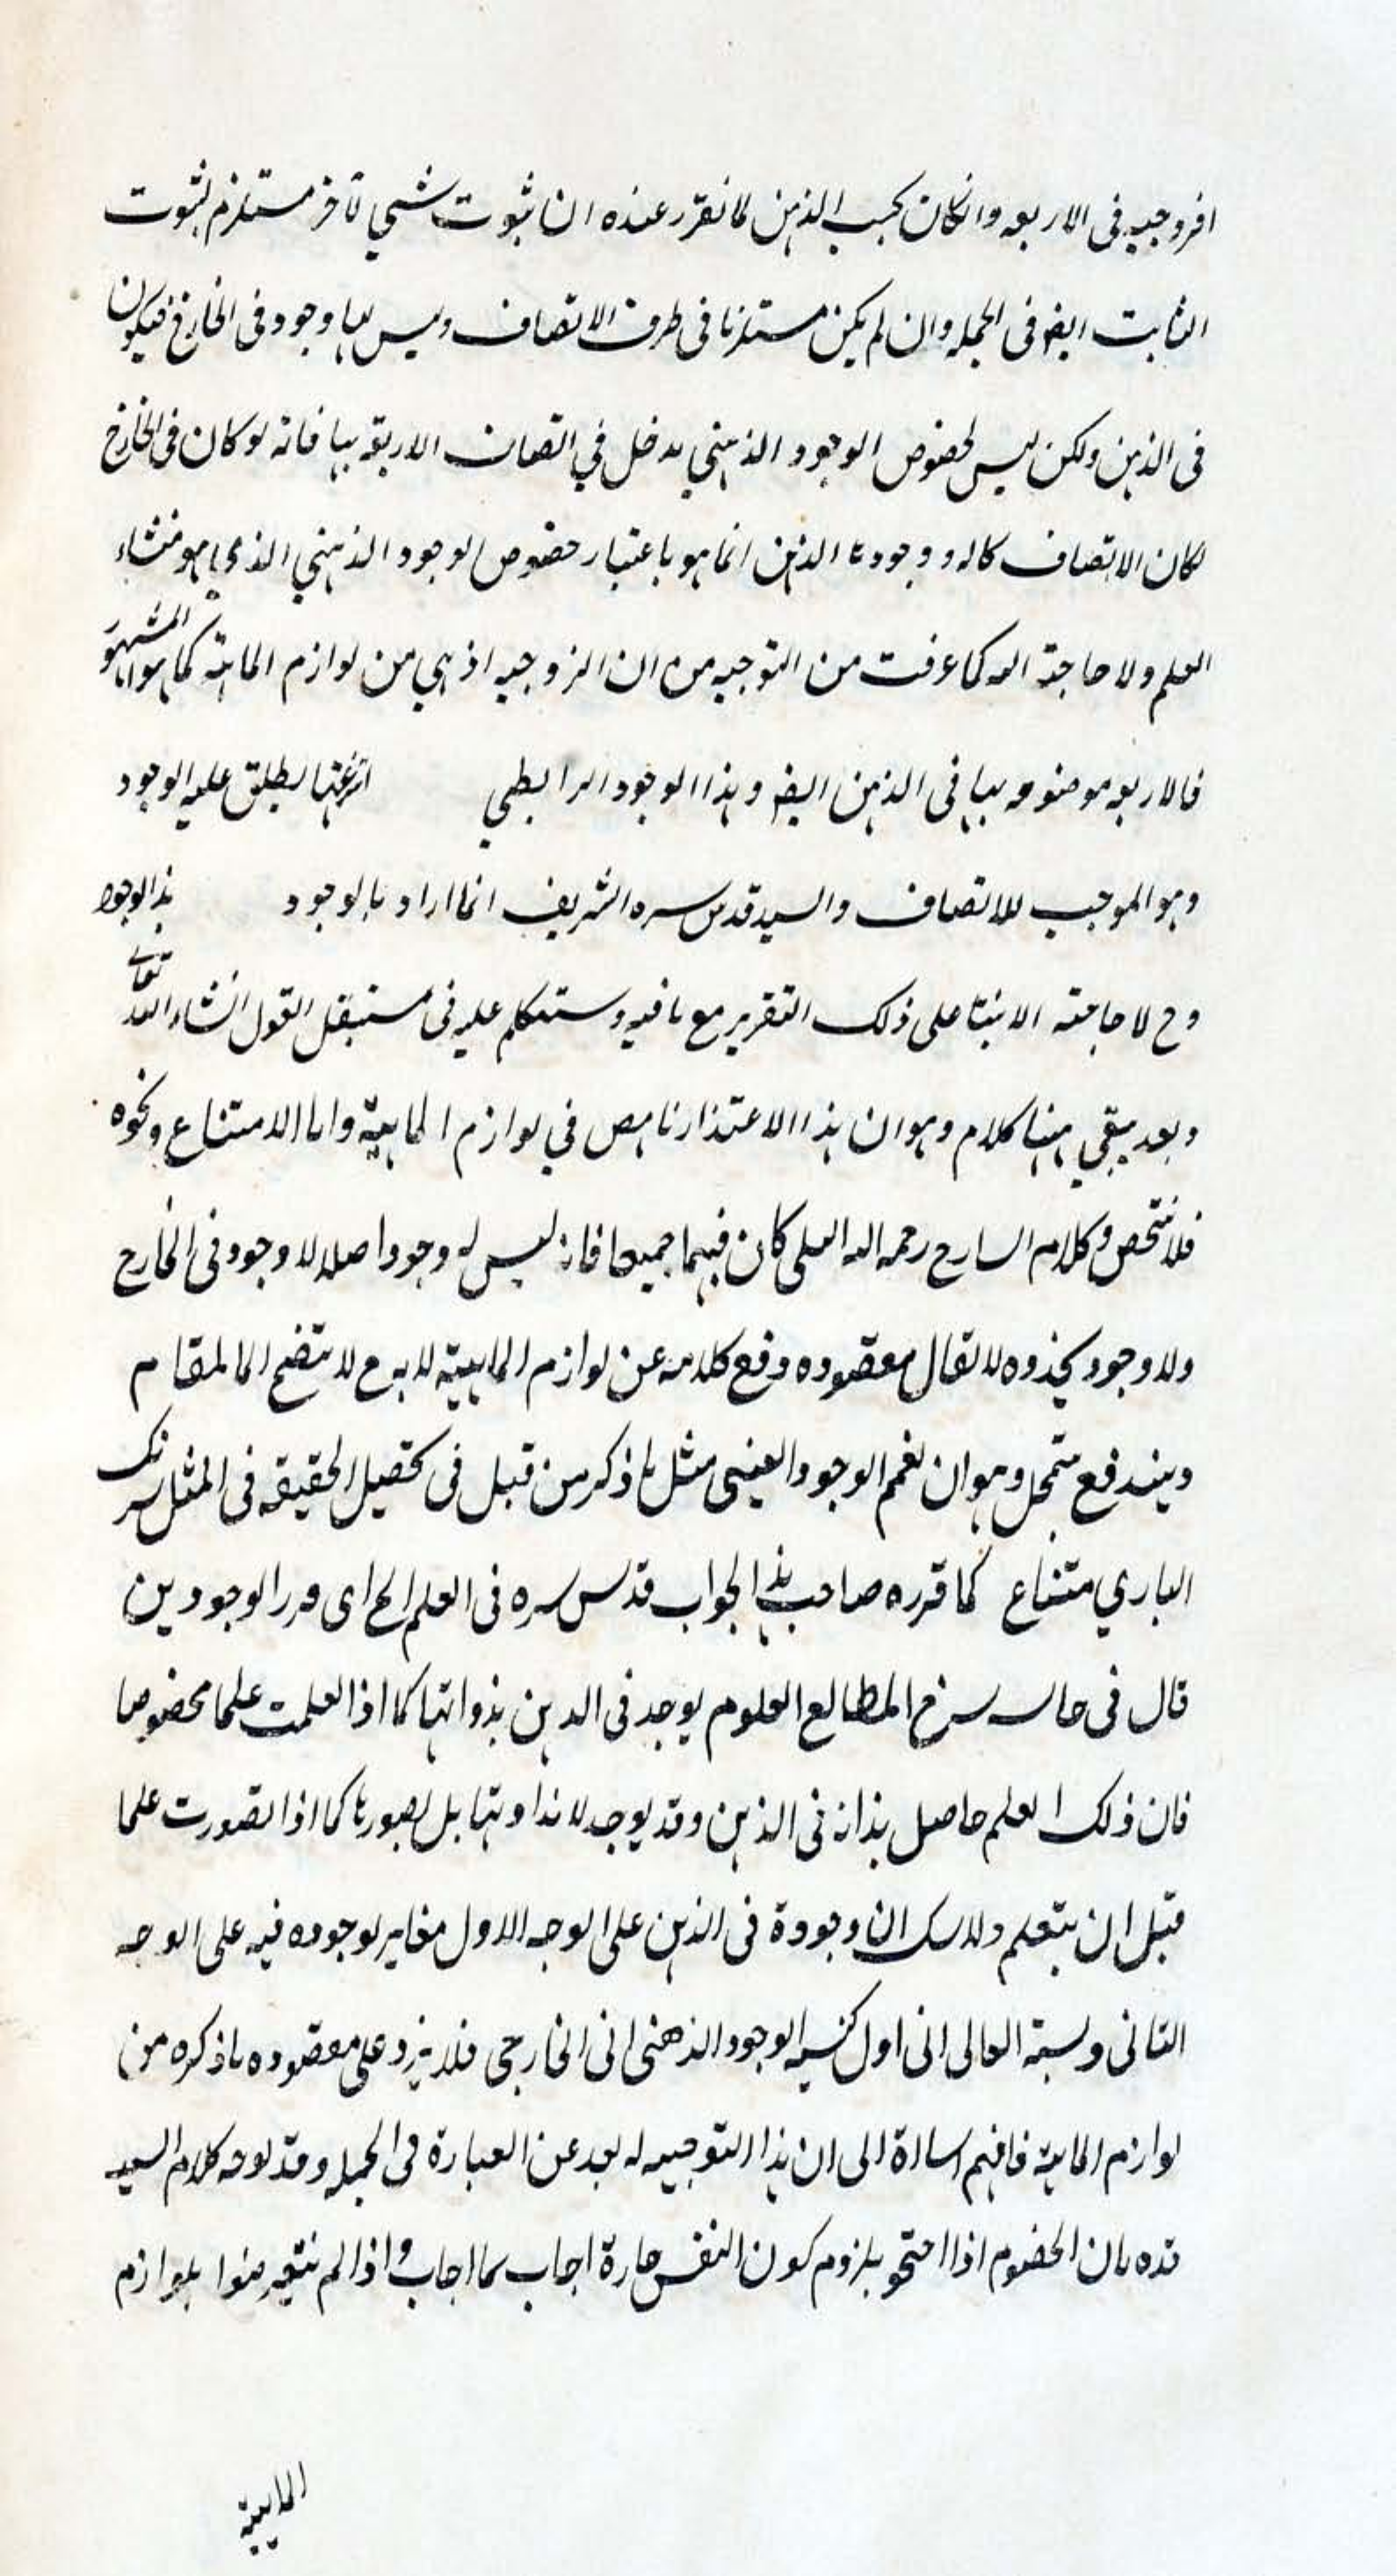 افروجيه فى الاربعه وان كان بحسب الذهن لما تقرر عنده ان ثبوت شيئ لآخر مستلزم لثبوت
الثابت ايضا فى الجمله وان لم يكن مستلزما فى طرف الاتصاف وليس لها وجود فى الخارج فيكون
فى الذهن ولكن ليس لخصوص الوجود الذهني مدخل في اتصاف الاربعة بها فانه لو كان فى الخارج
لكان الاتصاف كاله ووجود ما الذهن انما هو باعتبار خصوص الوجود الذهني الذى هو منشاء
العلم ولا حاجة اليه كما عرفت من التوجيه من ان الزوجيه اذ هي من لوازم الماهية كما هو المشهور
فالاربعه موصوفه بها فى الذهن ايضا وهذا الوجود الرابطي يطلق عليه الوجود
وهو الموجب للاتصاف والسيد قدس سره الشريف انما اراد بالوجود هذا الوجود
وح لا حاجته الا بنتا على ذلك التقرير مع ما فيه وستتكلم عليه فى مستقبل القول انشاء الله تعالى
وبعد يبقي ههنا كلام وهو ان هذا الاعتذار ناهض في لوازم الماهية واما الامتناع ونحوه
فلا تتحص وكلام السارح رحمه الله العلى كان فيهما جميعا فانه ليس له وجود اصلا لا وجود فى الخارج
ولا وجود يحذوه لا تقال مقصوده دفع كلامه عن لوازم الماهية لا به ع لا يتضح المقام
ويندفع بتمحل وهو ان نعمم الوجود العينى مثل ما ذكر من قبل فى تحصيل الحقيقه فى المثل سرنك
البارى متناع كما قرره صاحب هذا الجواب قدس سره فى العلم الخ اى ورا الوجودين
قال فى حاسه سرح المطالع العلوم يوجد فى الدهن بذواتها كما اذا تعلمت علما مخصوصا
فان ذلك العلم حاصل بذاته فى الذهن وقد يوجد لا بذاوتها بل بصورها كما اذا تصورت علما
قبل ان يتعلم ولا سك ان وجودة فى الذهن على الوجه الاول مغاير لوجوده فيه على الوجه
الثانى ونسبة الثانى الى اول كنسبة الوجود الذهنى الى الخارجى فلا يرد على مقصوده ما ذكره من
لوازم الماهية فافهم اسارة الى ان هذا التوجيه له بعد عن العبارة فى الجمله وقد يوجه كلام السيد
قده بان الخصوم اذا احتجو بلزوم كون النفس حارة اجاب بما اجاب واذا لم يتعرضوا بلوازم
الماهية